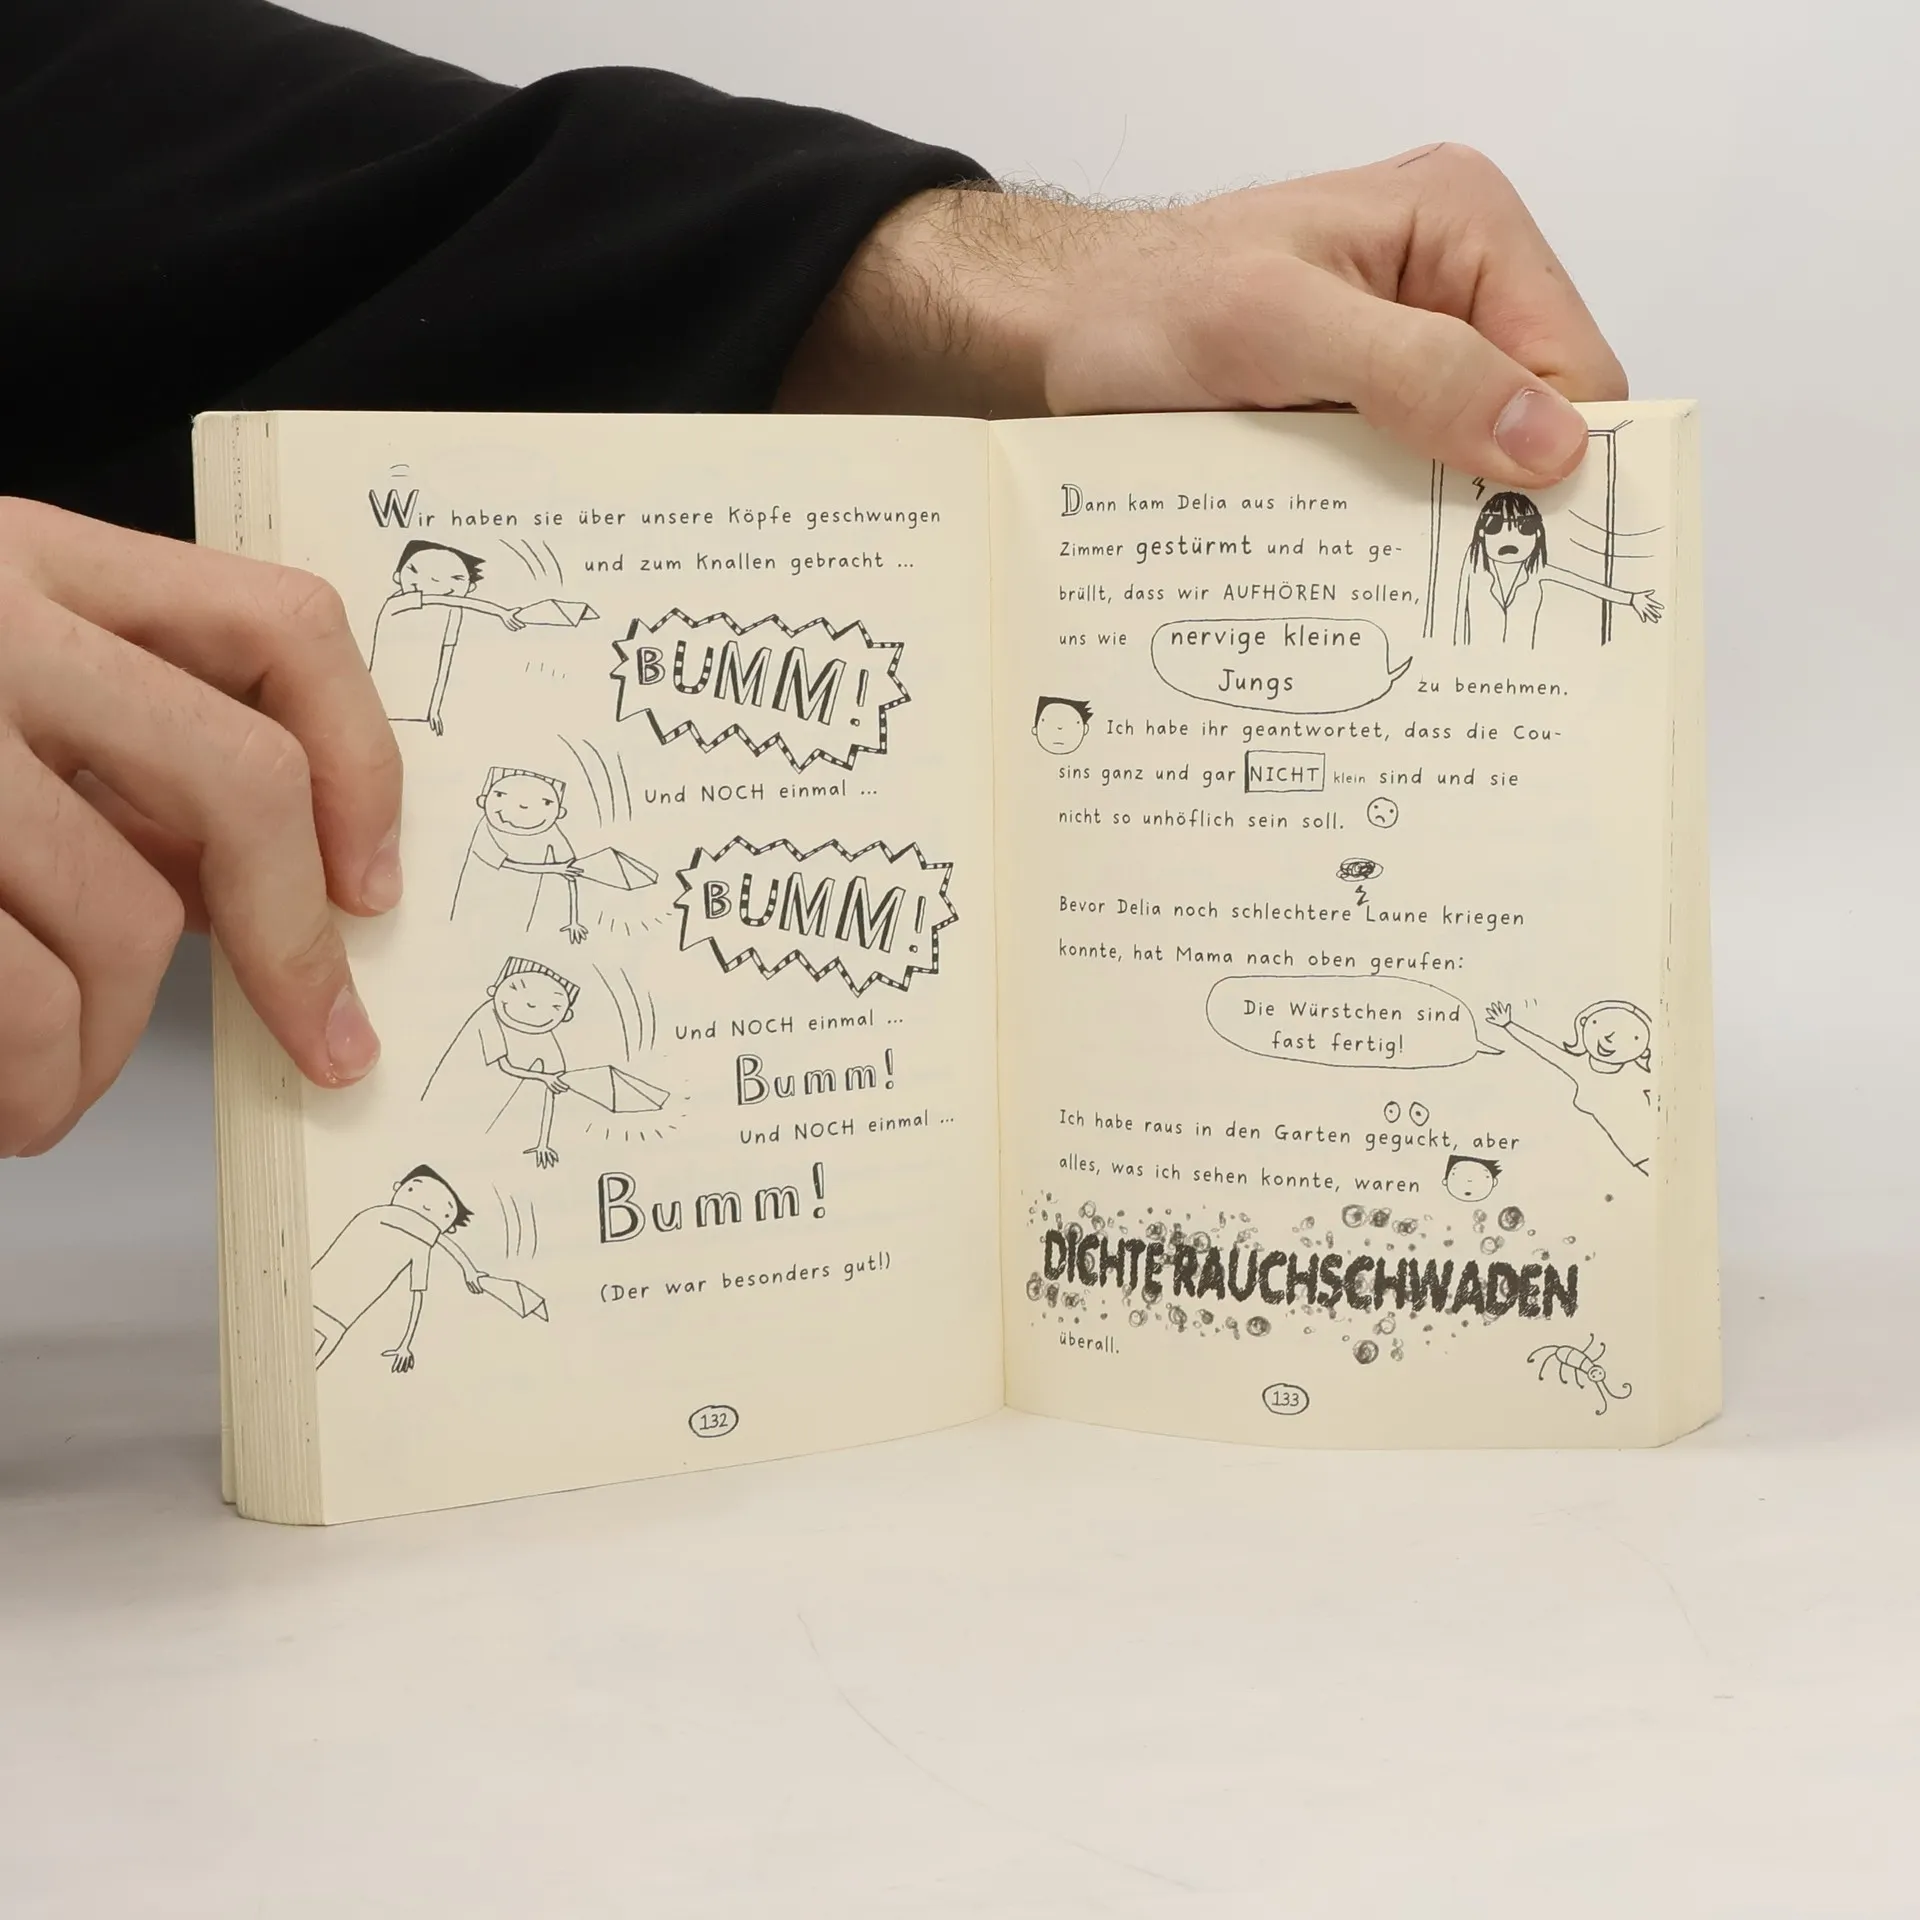 Wir haben sie über unsere Köpfe geschwungen
und zum Knallen gebracht ...
BUMM!
Und NOCH einmal ...
BUMM!
Und NOCH einmal ...
Bumm!
Und NOCH einmal ...
Bumm!
(Der war besonders gut!)
132
Dann kam Delia aus ihrem
Zimmer gestürmt und hat ge-
brüllt, dass wir AUFHÖREN sollen,
uns wie nervige kleine
Jungs zu benehmen.
Ich habe ihr geantwortet, dass die Cou-
sins ganz und gar NICHT klein sind und sie
nicht so unhöflich sein soll.
Bevor Delia noch schlechtere Laune kriegen
konnte, hat Mama nach oben gerufen:
Die Würstchen sind
fast fertig!
Ich habe raus in den Garten geguckt, aber
alles, was ich sehen konnte, waren
DICHTE RAUCHSCHWADEN
überall.
133